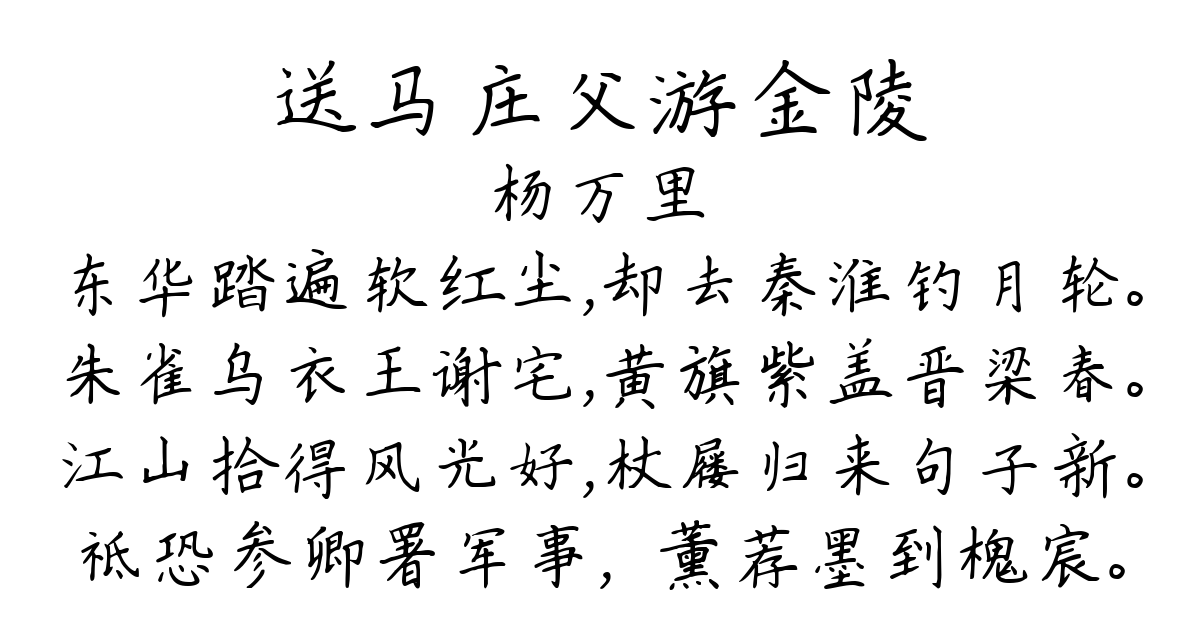 送马庄父游金陵
杨万里
东华踏遍软红尘,却去秦淮钓月轮。
朱雀乌衣王谢宅,黄旗紫盖晋梁春。
江山拾得风光好,杖屦归来句子新。
祗恐参卿署军事，薰荐墨到槐宸。